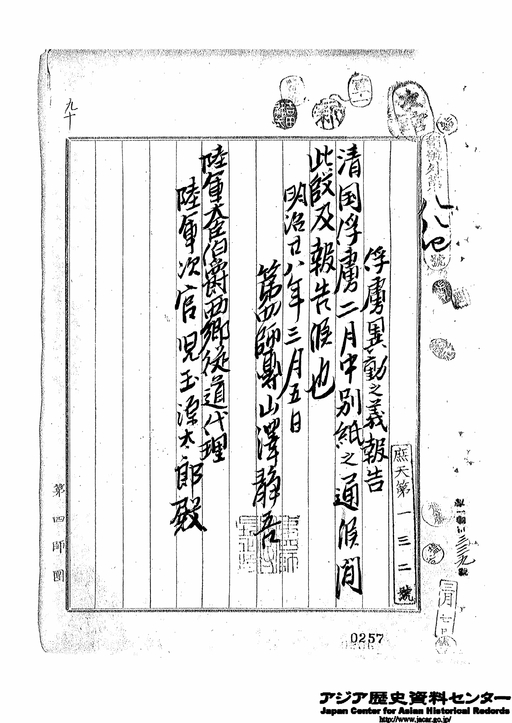 俘虜異動之義報告
清国俘虜二月中別紙之通候間
此段及報告候也
明治廿八年三月五日
第四師団長山澤静吾
陸軍大臣伯爵西郷従道代理
陸軍次官児玉源太郎殿
庶天第一三二號
次官
九十
第四師團
三月七日
0257
アジア歴史資料センター
Japan Center for Asian Historical Records
http://www.jacar.go.jp/